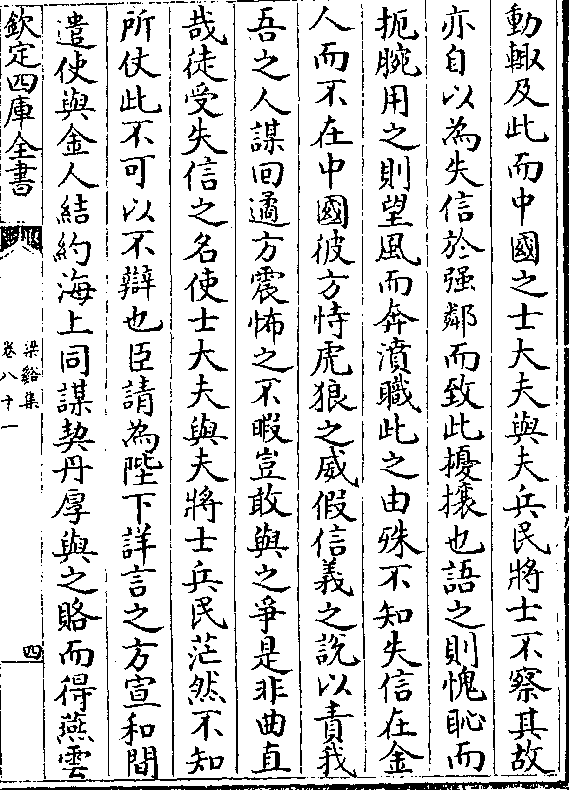 動輙及此而中國之士大夫與夫兵民將士不察其故
亦自以為失信於强鄰而致此擾攘也語之則愧恥而
扼腕用之則望風而奔潰職此之由殊不知失信在金
人而不在中國彼方恃虎狼之威假信義之說以責我
吾之人謀回遹方震怖之不暇豈敢與之爭是非曲直
哉徒受失信之名使士大夫與夫將士兵民茫然不知
所仗此不可以不辯也臣請為陛下詳言之方宣和間
遣使與金人結約海上同謀契丹厚與之賂而得燕雲
欽定四庫全書
梁谿集
卷八十一
四